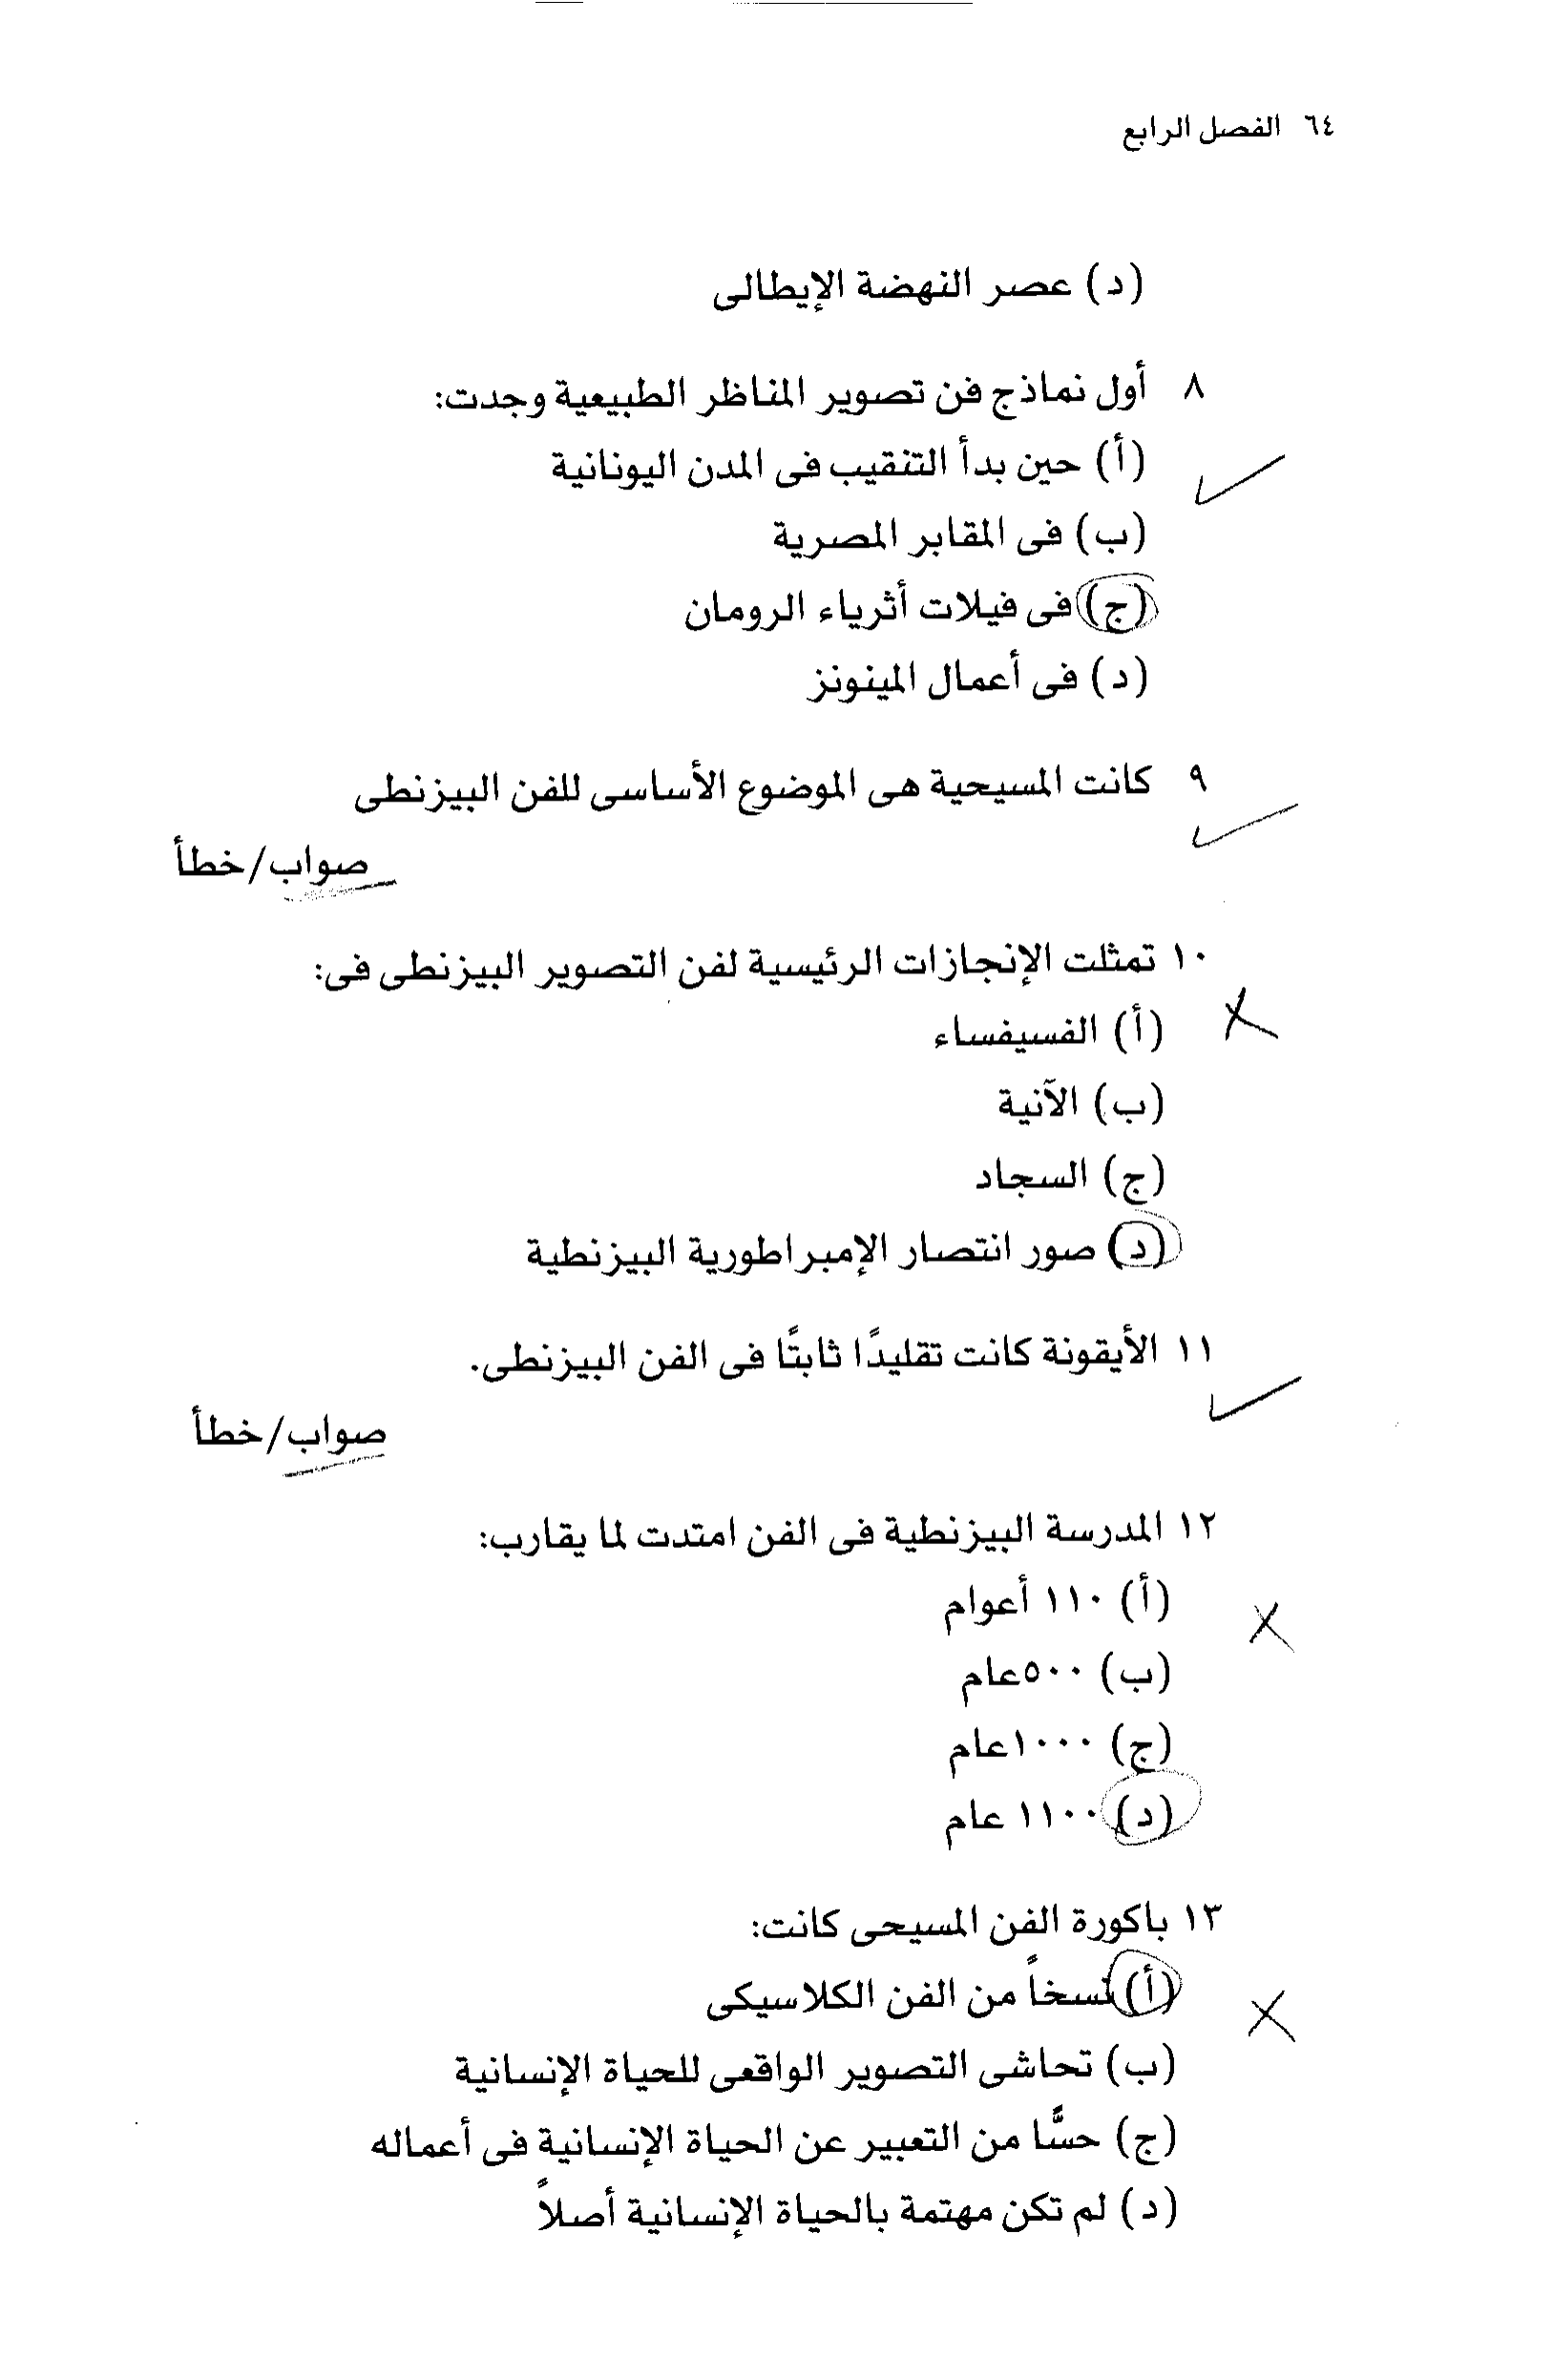 ٦٤ الفصل الرابع
(د) عصر النهضة الإيطالى
٨ أول نماذج فن تصوير المناظر الطبيعية وجدت:
(أ) حين بدأ التنقيب فى المدن اليونانية
(ب) فى المقابر المصرية
(ج) فى فيلات أثرياء الرومان
(د) فى أعمال المينونز
٩ كانت المسيحية هى الموضوع الأساسى للفن البيزنطى
صواب/خطأ
١٠ تمثلت الإنجازات الرئيسية لفن التصوير البيزنطى فى:
(أ) الفسيفساء
(ب) الآنية
(ج) السجاد
(د) صور انتصار الإمبراطورية البيزنطية
١١ الأيقونة كانت تقليدًا ثابتًا فى الفن البيزنطى.
صواب/خطأ
١٢ المدرسة البيزنطية فى الفن امتدت لما يقارب:
(أ) ١١٠ أعوام
(ب) ٥٠٠عام
(ج) ١٠٠٠عام
(د) ١١٠٠ عام
١٣ باكورة الفن المسيحى كانت:
(أ) نسخاً من الفن الكلاسيكى
(ب) تحاشى التصوير الواقعى للحياة الإنسانية
(ج) حسًّا من التعبير عن الحياة الإنسانية فى أعماله
(د) لم تكن مهتمة بالحياة الإنسانية أصلاً